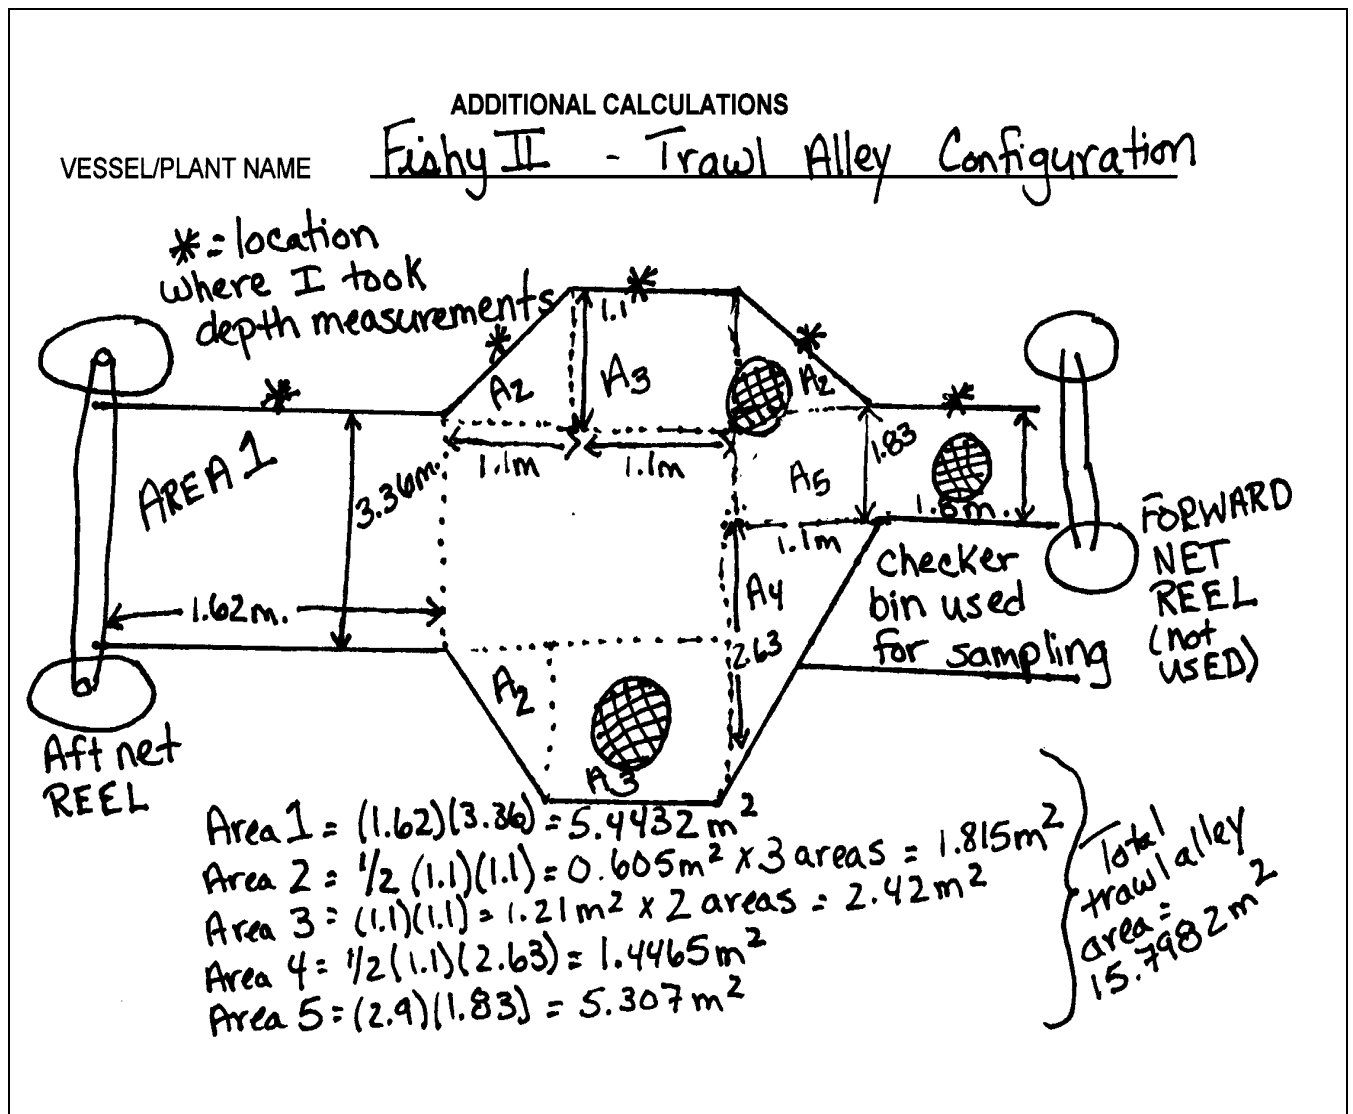 ADDITIONAL CALCULATIONS
VESSEL/PLANT NAME Fishy II - Trawl Alley Configuration
* = location
where I took
depth measurements
1.1
A2
A3
A2
AREA 1
3.36m.
1.1m
1.1m
1.83
A5
1.8m.
1.1m
FORWARD
NET
REEL
(not
USED)
checker
bin used
for sampling
1.62m.
A4
2.63
A2
A3
Aft net
REEL
Area 1 = (1.62)(3.36) = 5.4432 m²
Area 2 = 1/2 (1.1)(1.1) = 0.605m² x 3 areas = 1.815m²
Area 3 = (1.1)(1.1) = 1.21m² x 2 areas = 2.42m²
Area 4 = 1/2 (1.1)(2.63) = 1.4465m²
Area 5 = (2.9)(1.83) = 5.307m²
Total
trawl alley
area =
15.7982m²